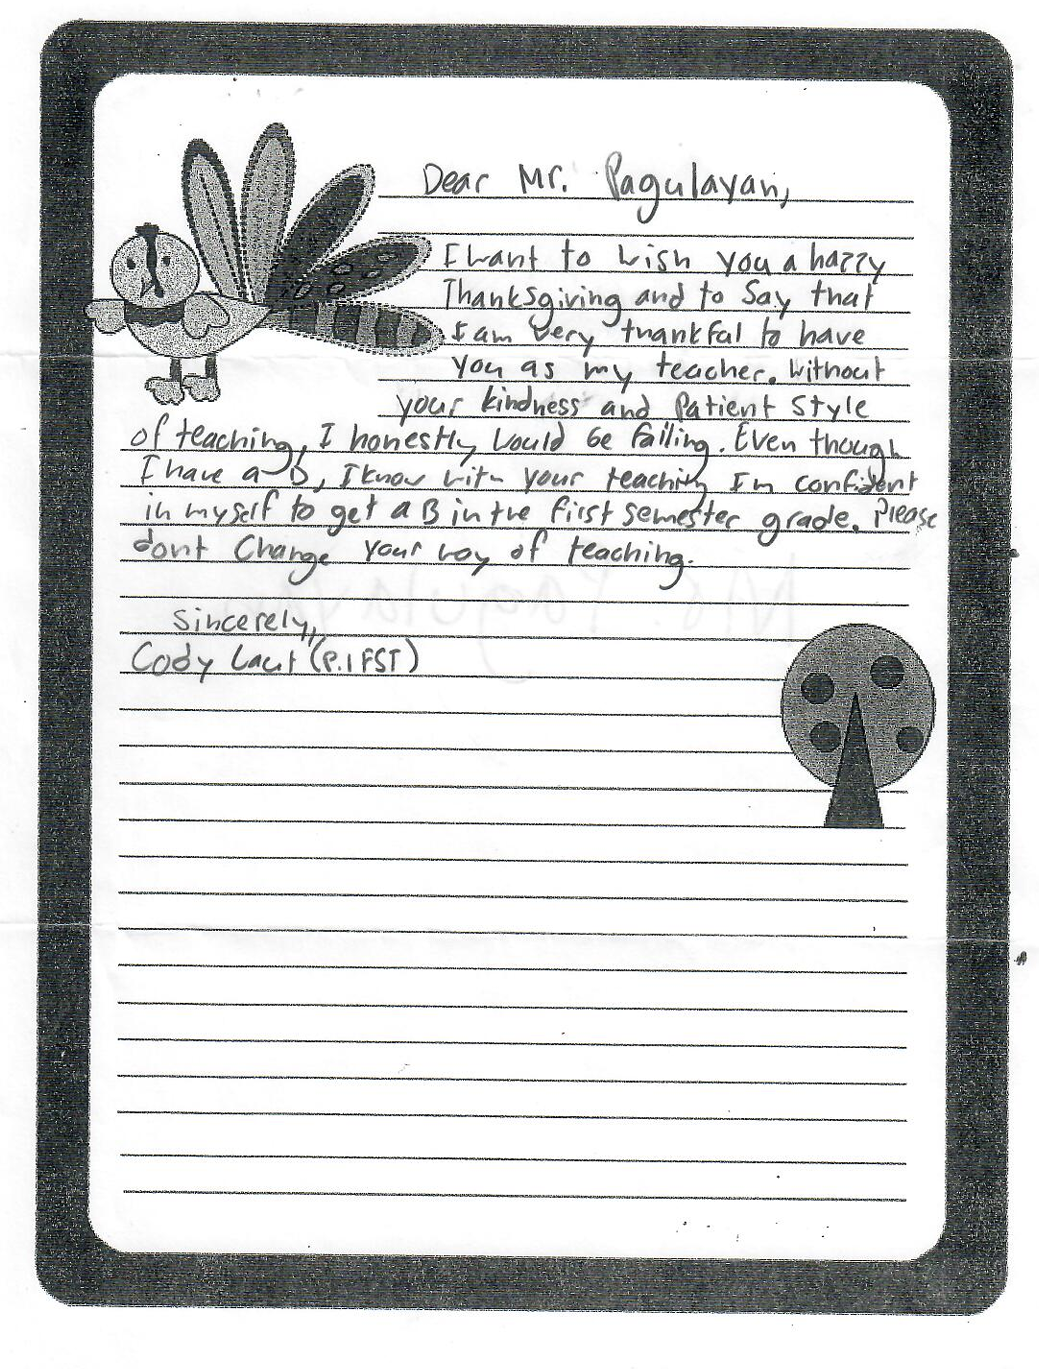 Dear Mr. Pagulayan,
I want to wish you a happy
Thanksgiving and to say that
I am very thankful to have
you as my teacher. Without
your kindness and patient style
of teaching, I honestly would be failing. Even though
I have a D, I know with your teaching I'm confident
in myself to get a B in the first semester grade. Please
dont Change your way of teaching.
Sincerely,
Cody (P.1 FST)